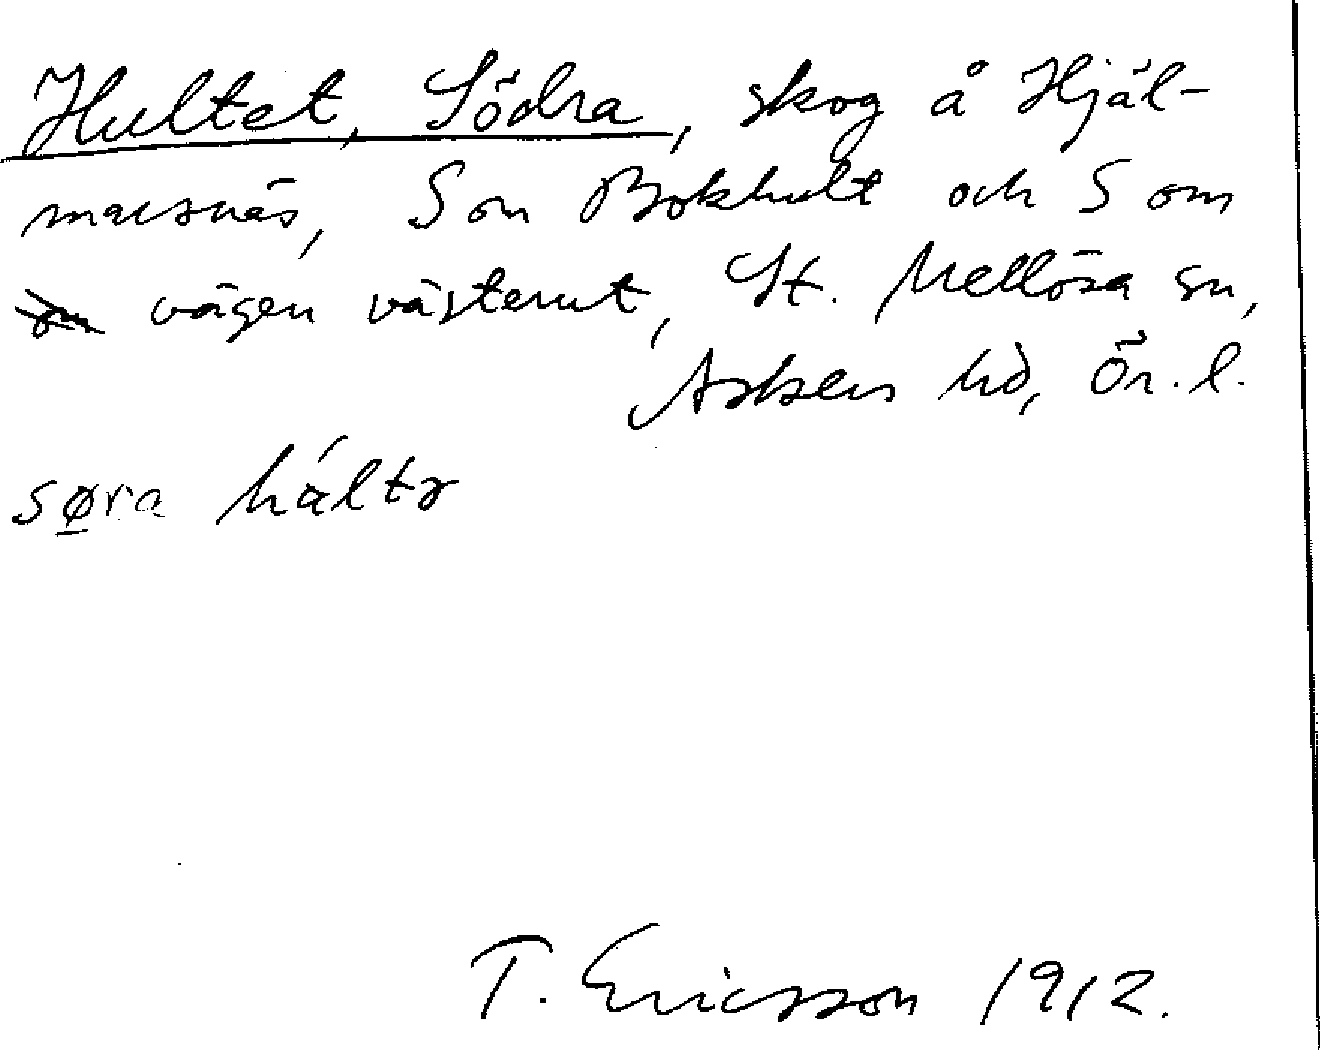 Hultet, Södra, skog å Hjäl-
marsnäs, S om Bokhult och S om
vägen västerut, St. Mellösa sn,
Askers hd, Ör. l.
søra hálta
T. Ericsson 1912.